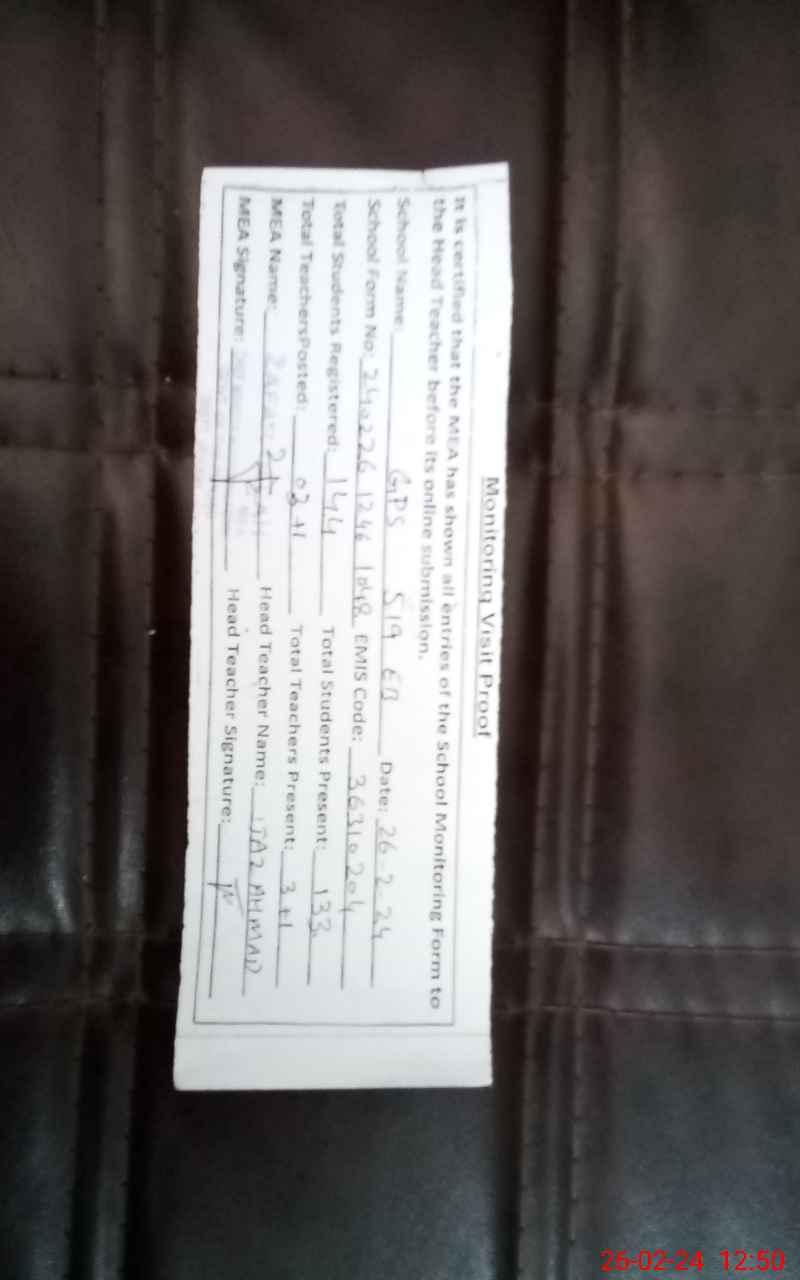 Monitoring Visit Proof
It is certified that the MEA has shown all entries of the School Monitoring Form to
the Head Teacher before its online submission.
School Name: GPS 519 EB Date: 26-2-24
School Form No: 240226 1246 1048 EMIS Code: 36310204
Total Students Registered: 144 Total Students Present: 133
Total TeachersPosted: 03+1 Total Teachers Present: 3+1
MEA Name: Head Teacher Name: IJAZ AHMAD
MEA Signature: Head Teacher Signature:
26-02-24 12:50